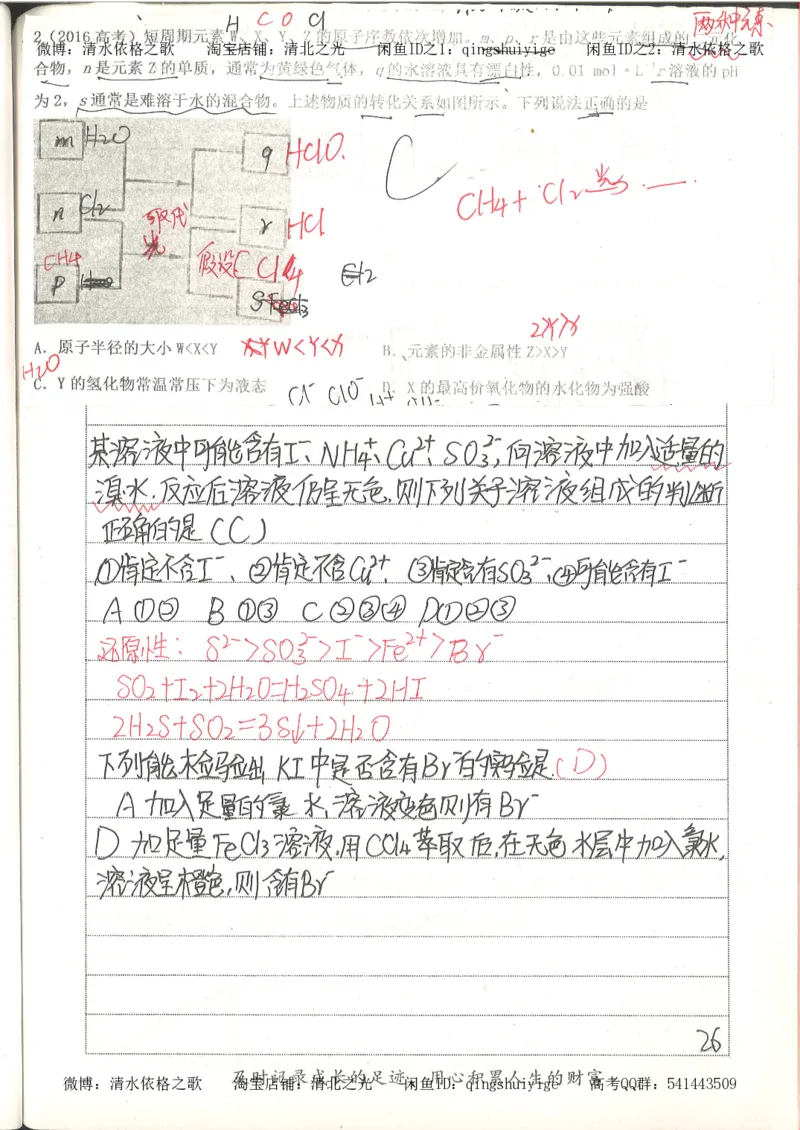 H C O Cl
两种元素
2(2016高考)短周期元素W、X、Y、Z的原子序数依次增加。m、p、r是由这些元素组成的二元化
微博：清水依格之歌 淘宝店铺：清北之光 闲鱼ID之1：qingshuiyige 闲鱼ID之2：清水依格之歌
合物，n是元素Z的单质，通常为黄绿色气体，q的水溶液具有漂白性，0.01 mol·L⁻¹r溶液的pH
为2，s通常是难溶于水的混合物。上述物质的转化关系如图所示。下列说法正确的是
m H2O
q HClO.
C
CH4+Cl2 光
n Cl2
取代
光
r HCl
CH4
p
假设 CCl4
s
Cl2
A．原子半径的大小W<X<Y W<Y<X
B．元素的非金属性Z>X>Y Z>Y>X
H2O
C．Y的氢化物常温常压下为液态
D．X的最高价氧化物的水化物为强酸
Cl⁻ ClO⁻ H⁺
某溶液中可能含有I⁻、NH4⁺、Cu²⁺、SO3²⁻，向溶液中加入适量的
溴水，反应后溶液仍呈无色，则下列关于溶液组成的判断
正确的是（C）
①肯定不含I⁻、②肯定不含Cu²⁺、③肯定含有SO3²⁻、④可能含有I⁻
A ①② B ①③ C ②③④ D ①②③
还原性：S²⁻>SO3²⁻>I⁻>Fe²⁺>Br⁻
SO2+I2+2H2O=H2SO4+2HI
2H2S+SO2=3S↓+2H2O
下列能检验出KI中是否含有Br⁻的实验是（D）
A 加入足量的氯水，溶液变色则有Br⁻
D 加足量FeCl3溶液，用CCl4萃取后，在无色水层中加入氯水，
溶液呈橙色，则含有Br⁻
26
及时记录成长的足迹 用心积累人生的财富
微博：清水依格之歌 淘宝店铺：清北之光 闲鱼ID：qingshuiyige 高考QQ群：541443509